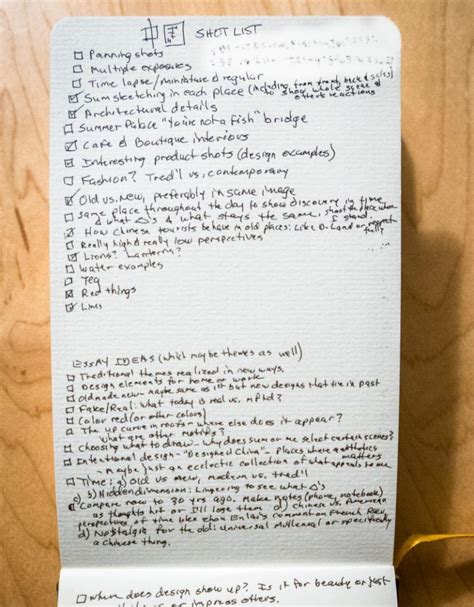 SHOT LIST
☐ Panning shots
☐ Multiple exposures
☐ Time lapse/miniature & regular
☑ Sum sketching in each place (including from front, back & sides)
to show whole scene &
others reactions
☑ Architectural details
☐ Summer Palace "you're not a fish" bridge
☑ Cafe & Boutique interiors
☑ Interesting product shots (design examples)
☐ Fashion? Trad'l vs, contemporary
☑ Old vs, new, preferably in same image
☐ same place throughout the day to show discovery in time
& what Δ's & what stays the same. shoot the place when
I stand.
☑ How Chinese tourists behave in old places: Like D-Land or respect-
fully?
☐ Really high & really low perspectives
☑ Lions? Lanterns?
☐ Water examples
☐ Tea
☒ Red things
☑ Lines
ESSAY IDEAS (which maybe themes as well)
☐ Traditional themes realized in new ways,
☐ Design elements for home or work
☐ Old made new - maybe same as 1st but new designs that live in past
☐ Fake/Real: What today is real vs, mFkd?
☐ Color red (or other colors)
☐ The up curve in roofs - where else does it appear?
What are other motifs?
☐ Choosing what to draw - why does Sum or me select certain scenes?
☐ Intentional design - "Designed China" - Places where aesthetics
matters
- Maybe just an eclectic collection of what appeals to me
☐ Time: a) Old vs new, modern vs. trad'l
b) Hidden dimension: Lingering to see what Δ's
c) Compare now to 30 yrs ago. Make notes (phone, notebook)
as thoughts hit or I'll lose them d) Chinese vs. American
perspectives of time like Zhou Enlai's comment on French Rev,
d) Nostalgia for the old: Universal Millenial or specifically
a Chinese thing.
☐ Where does design show up? Is it for beauty or just
or impress others.